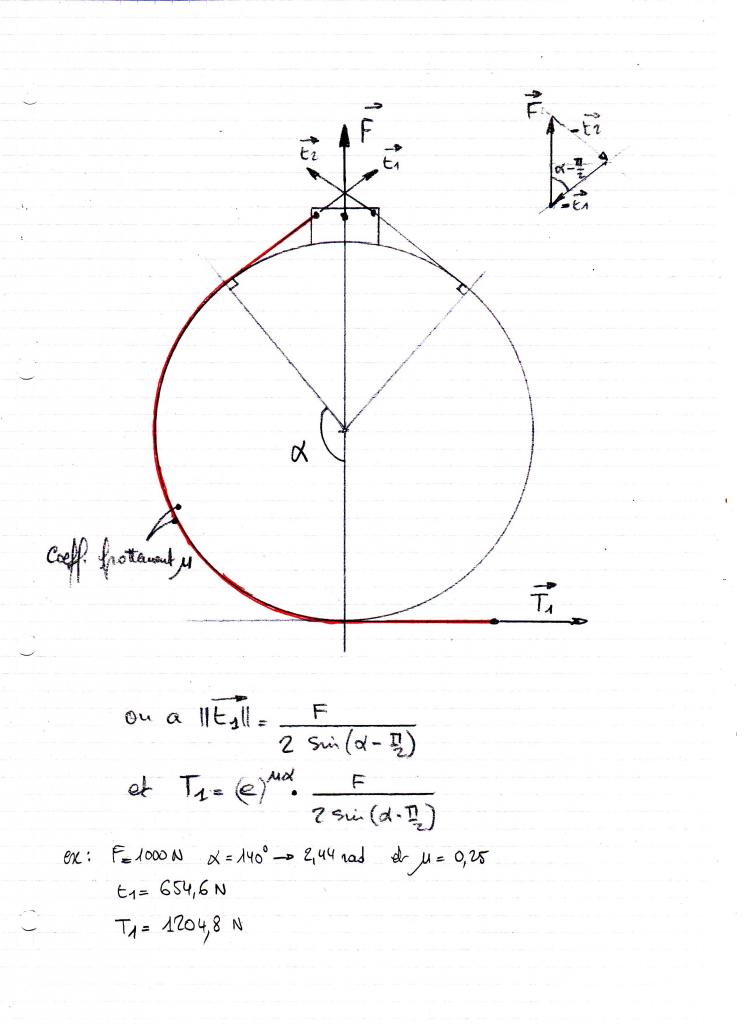 F
t2
t1
F
-t2
α-π/2
-t1
α
Coeff. frottement μ
T1
on a ||t1|| = F / 2 sin(α-π/2)
et T1 = (e)^μα . F / 2 sin(α-π/2)
ex: F=1000N α=140° → 2,44 rad et μ=0,25
t1= 654,6 N
T1= 1204,8 N